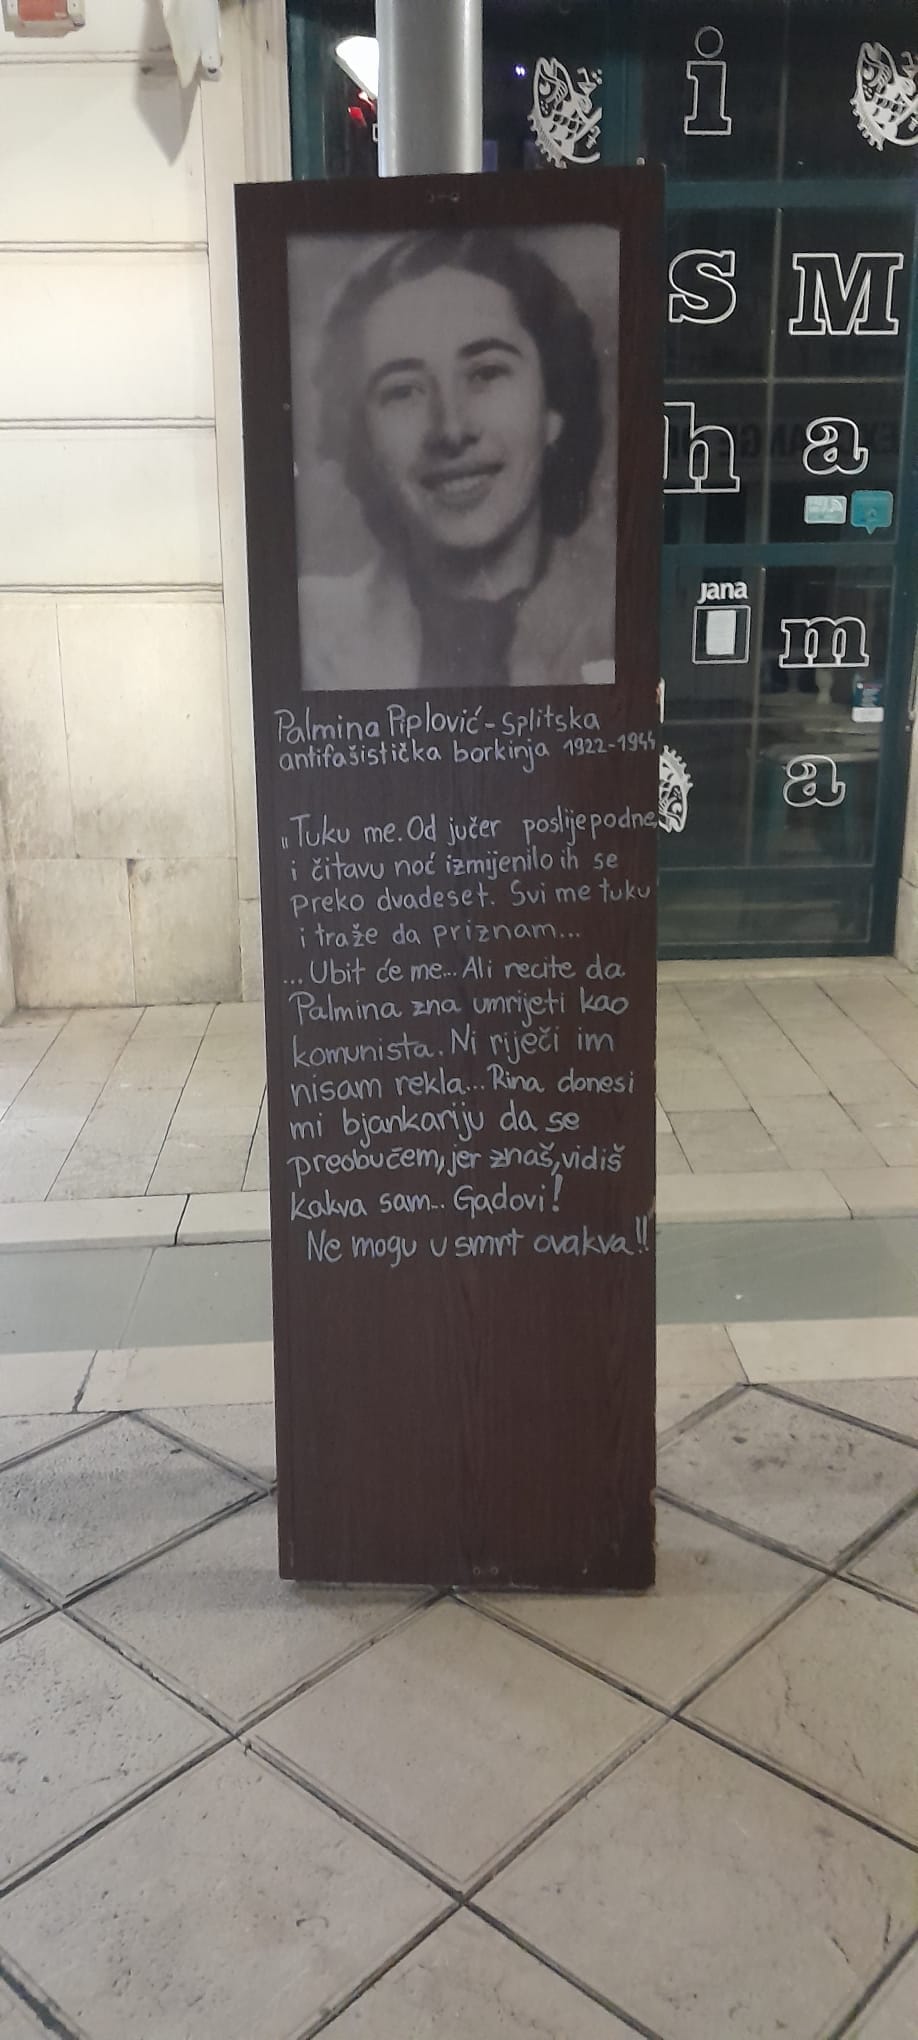 Palmina Piplović - splitska
antifašistička borkinja 1922-1944
„Tuku me. Od jučer poslijepodne,
i čitavu noć izmijenilo ih se
preko dvadeset. Svi me tuku
i traže da priznam...
...Ubit će me... Ali recite da
Palmina zna umrijeti kao
komunista. Ni riječi im
nisam rekla... Rina donesi
mi bjankariju da se
preobučem, jer znaš, vidiš
kakva sam.. Gadovi!
Ne mogu u smrt ovakva!!
i
s M
h a
jana
m
a